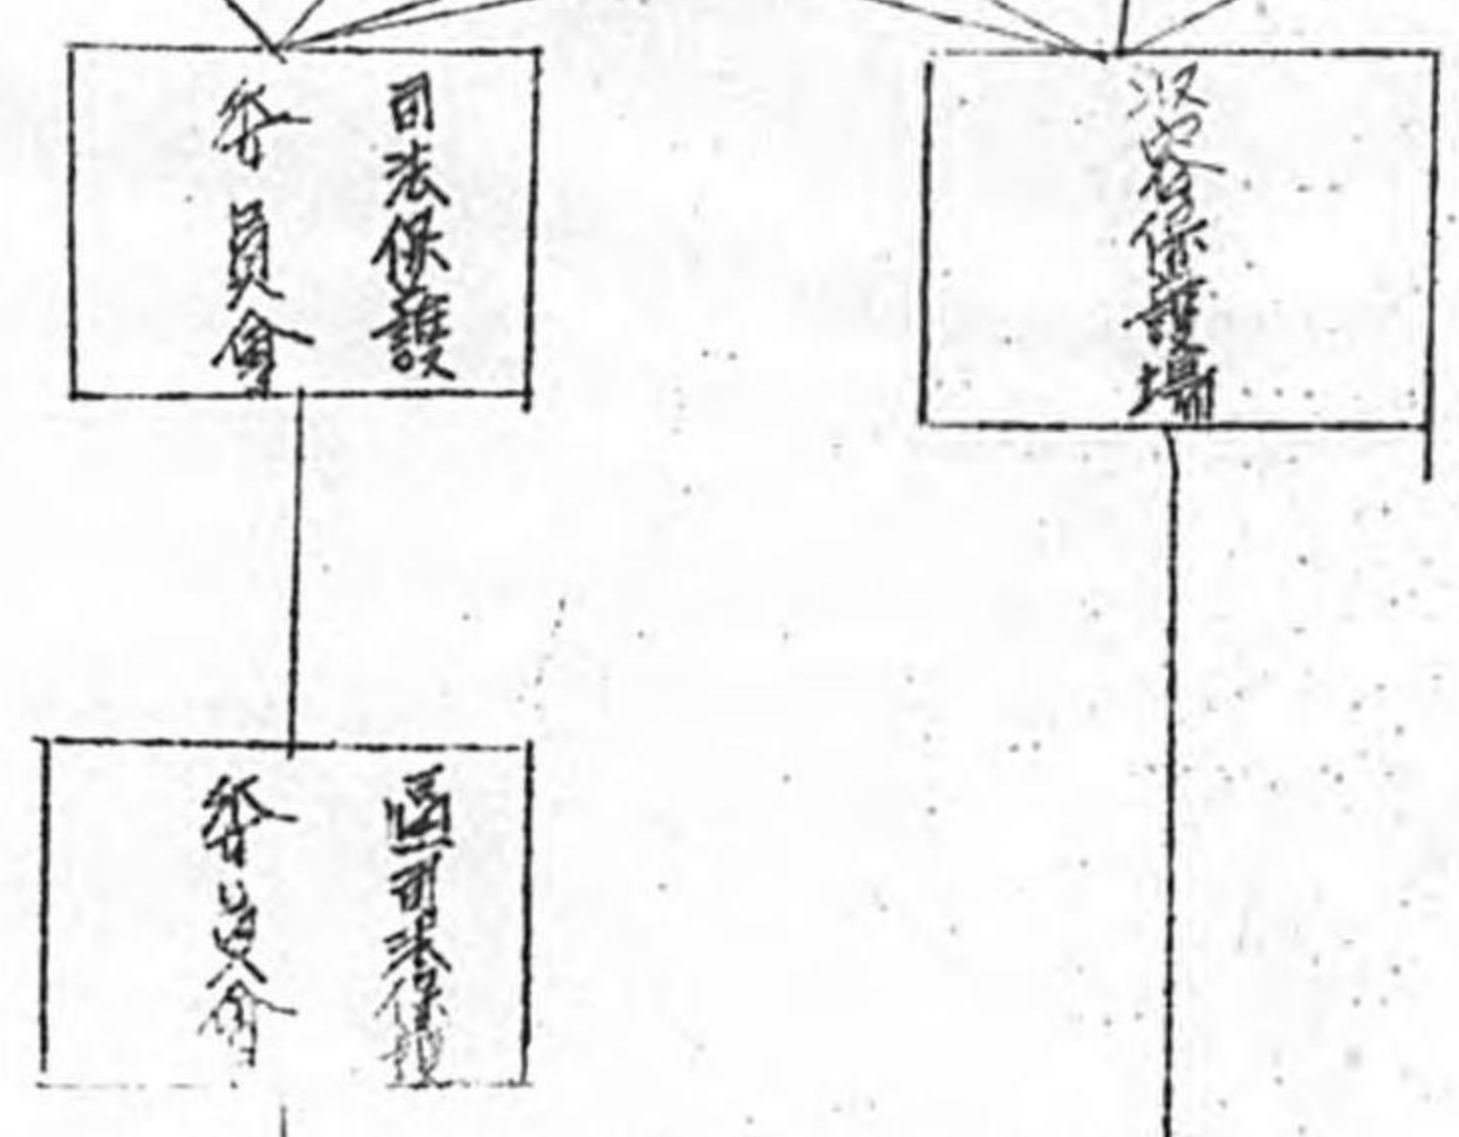 収容保護場
司法保護
委員會
區司法保護
委員會